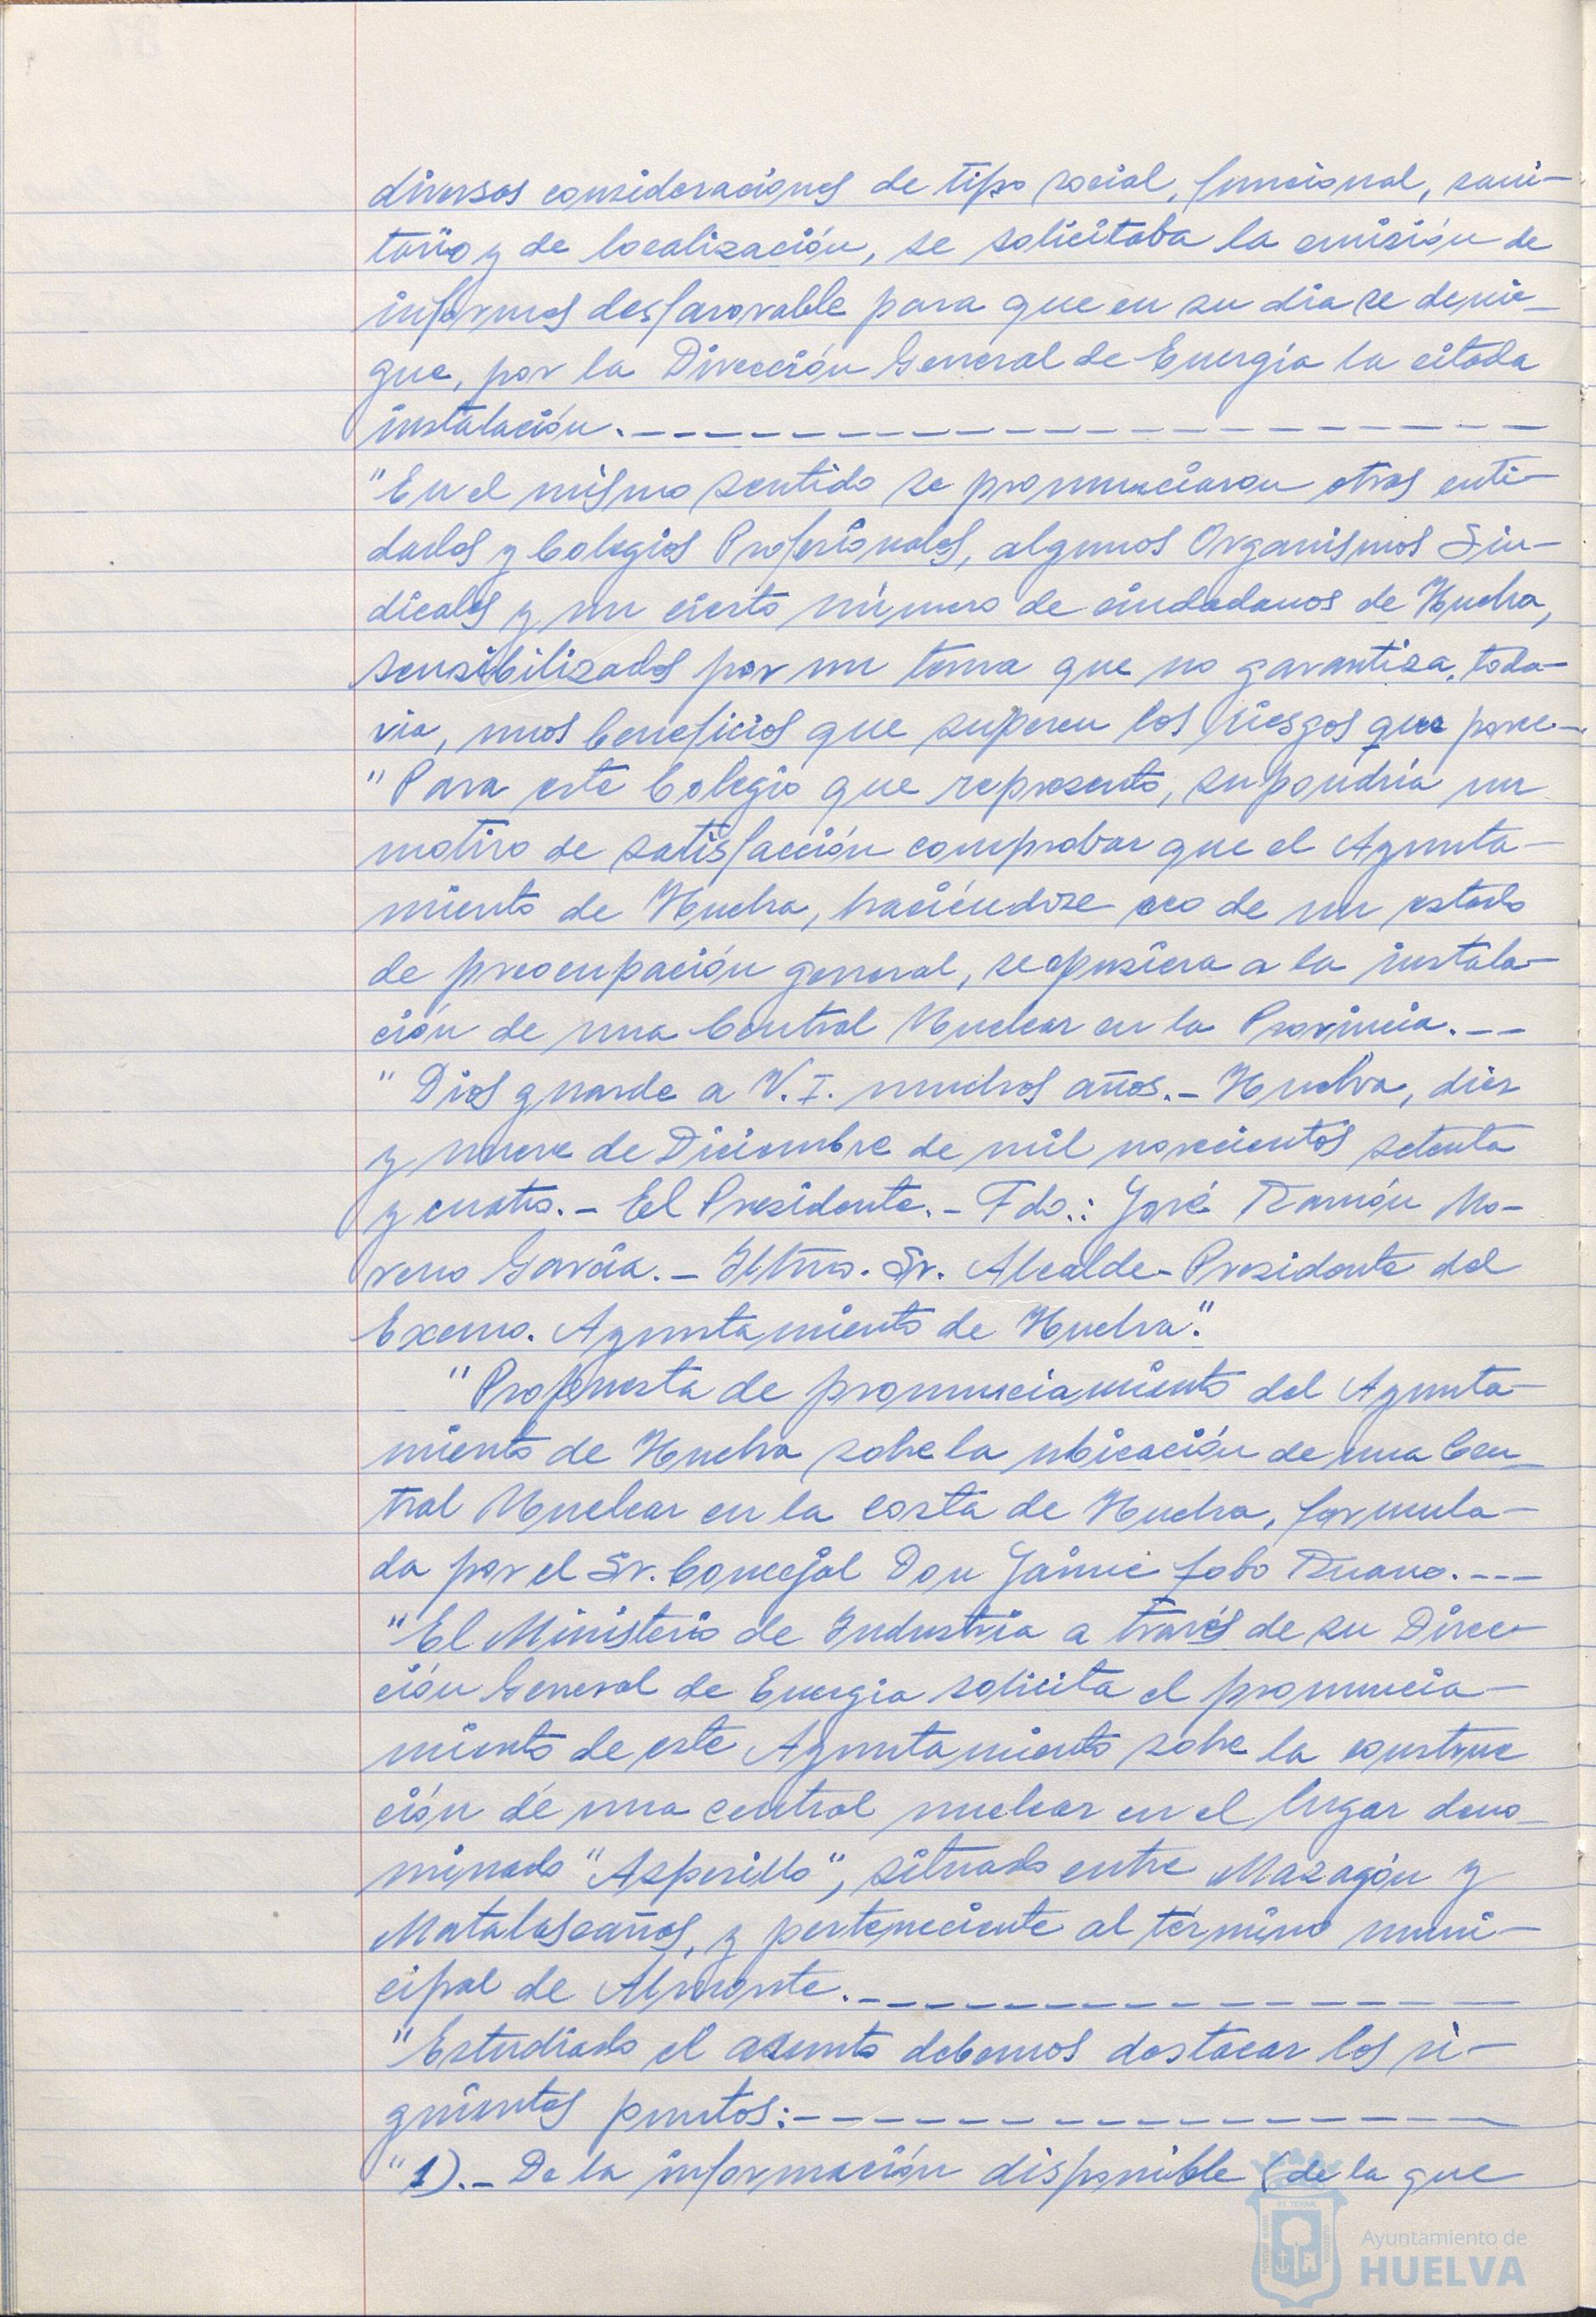 diversas consideraciones de tipo social, funcional, sani-
tario y de localización, se solicitaba la emisión de
informes desfavorable para que en su dia se denie-
gue, por la Dirección General de Energía la citada
instalación.-----------------
"En el mismo sentido se pronunciaron otras enti-
dades y Colegios Profesionales, algunos Organismos Sin-
dicales y un cierto número de ciudadanos de Huelva,
sensibilizados por un tema que no garantiza, toda-
via, unos beneficios que superen los riesgos que posee.-
"Para este Colegio que represento, supondría un
motivo de satisfacción comprobar que el Ayunta-
miento de Huelva, haciéndose eco de un estado
de preocupación general, se opusiera a la instala-
ción de una Central Nuclear en la Provincia.--
"Dios guarde a V.I. muchos años.- Huelva, diez
y nueve de Diciembre de mil novecientos setenta
y cuatro.- El Presidente.- Fdo.: José Ramón Mo-
reno García.- Iltmo. Sr. Alcalde-Presidente del
Excmo. Ayuntamiento de Huelva."
"Propuesta de pronunciamiento del Ayunta-
miento de Huelva sobre la ubicación de una Cen-
tral Nuclear en la costa de Huelva, formula-
da por el Sr. Concejal Don Jaime Lobo Ruano.---
"El Ministerio de Industria a través de su Direc-
ción General de Energia solicita el pronuncia-
miento de este Ayuntamiento sobre la construc
ción de una central nuclear en el lugar deno-
minado "Asperillo", situado entre Mazagón y
Matalascañas, y perteneciente al término muni-
cipal de Almonte.------------
"Estudiado el asunto debemos destacar los si-
guientes puntos:-------------
"1).- De la información disponible (de la que
Ayuntamiento de
HUELVA